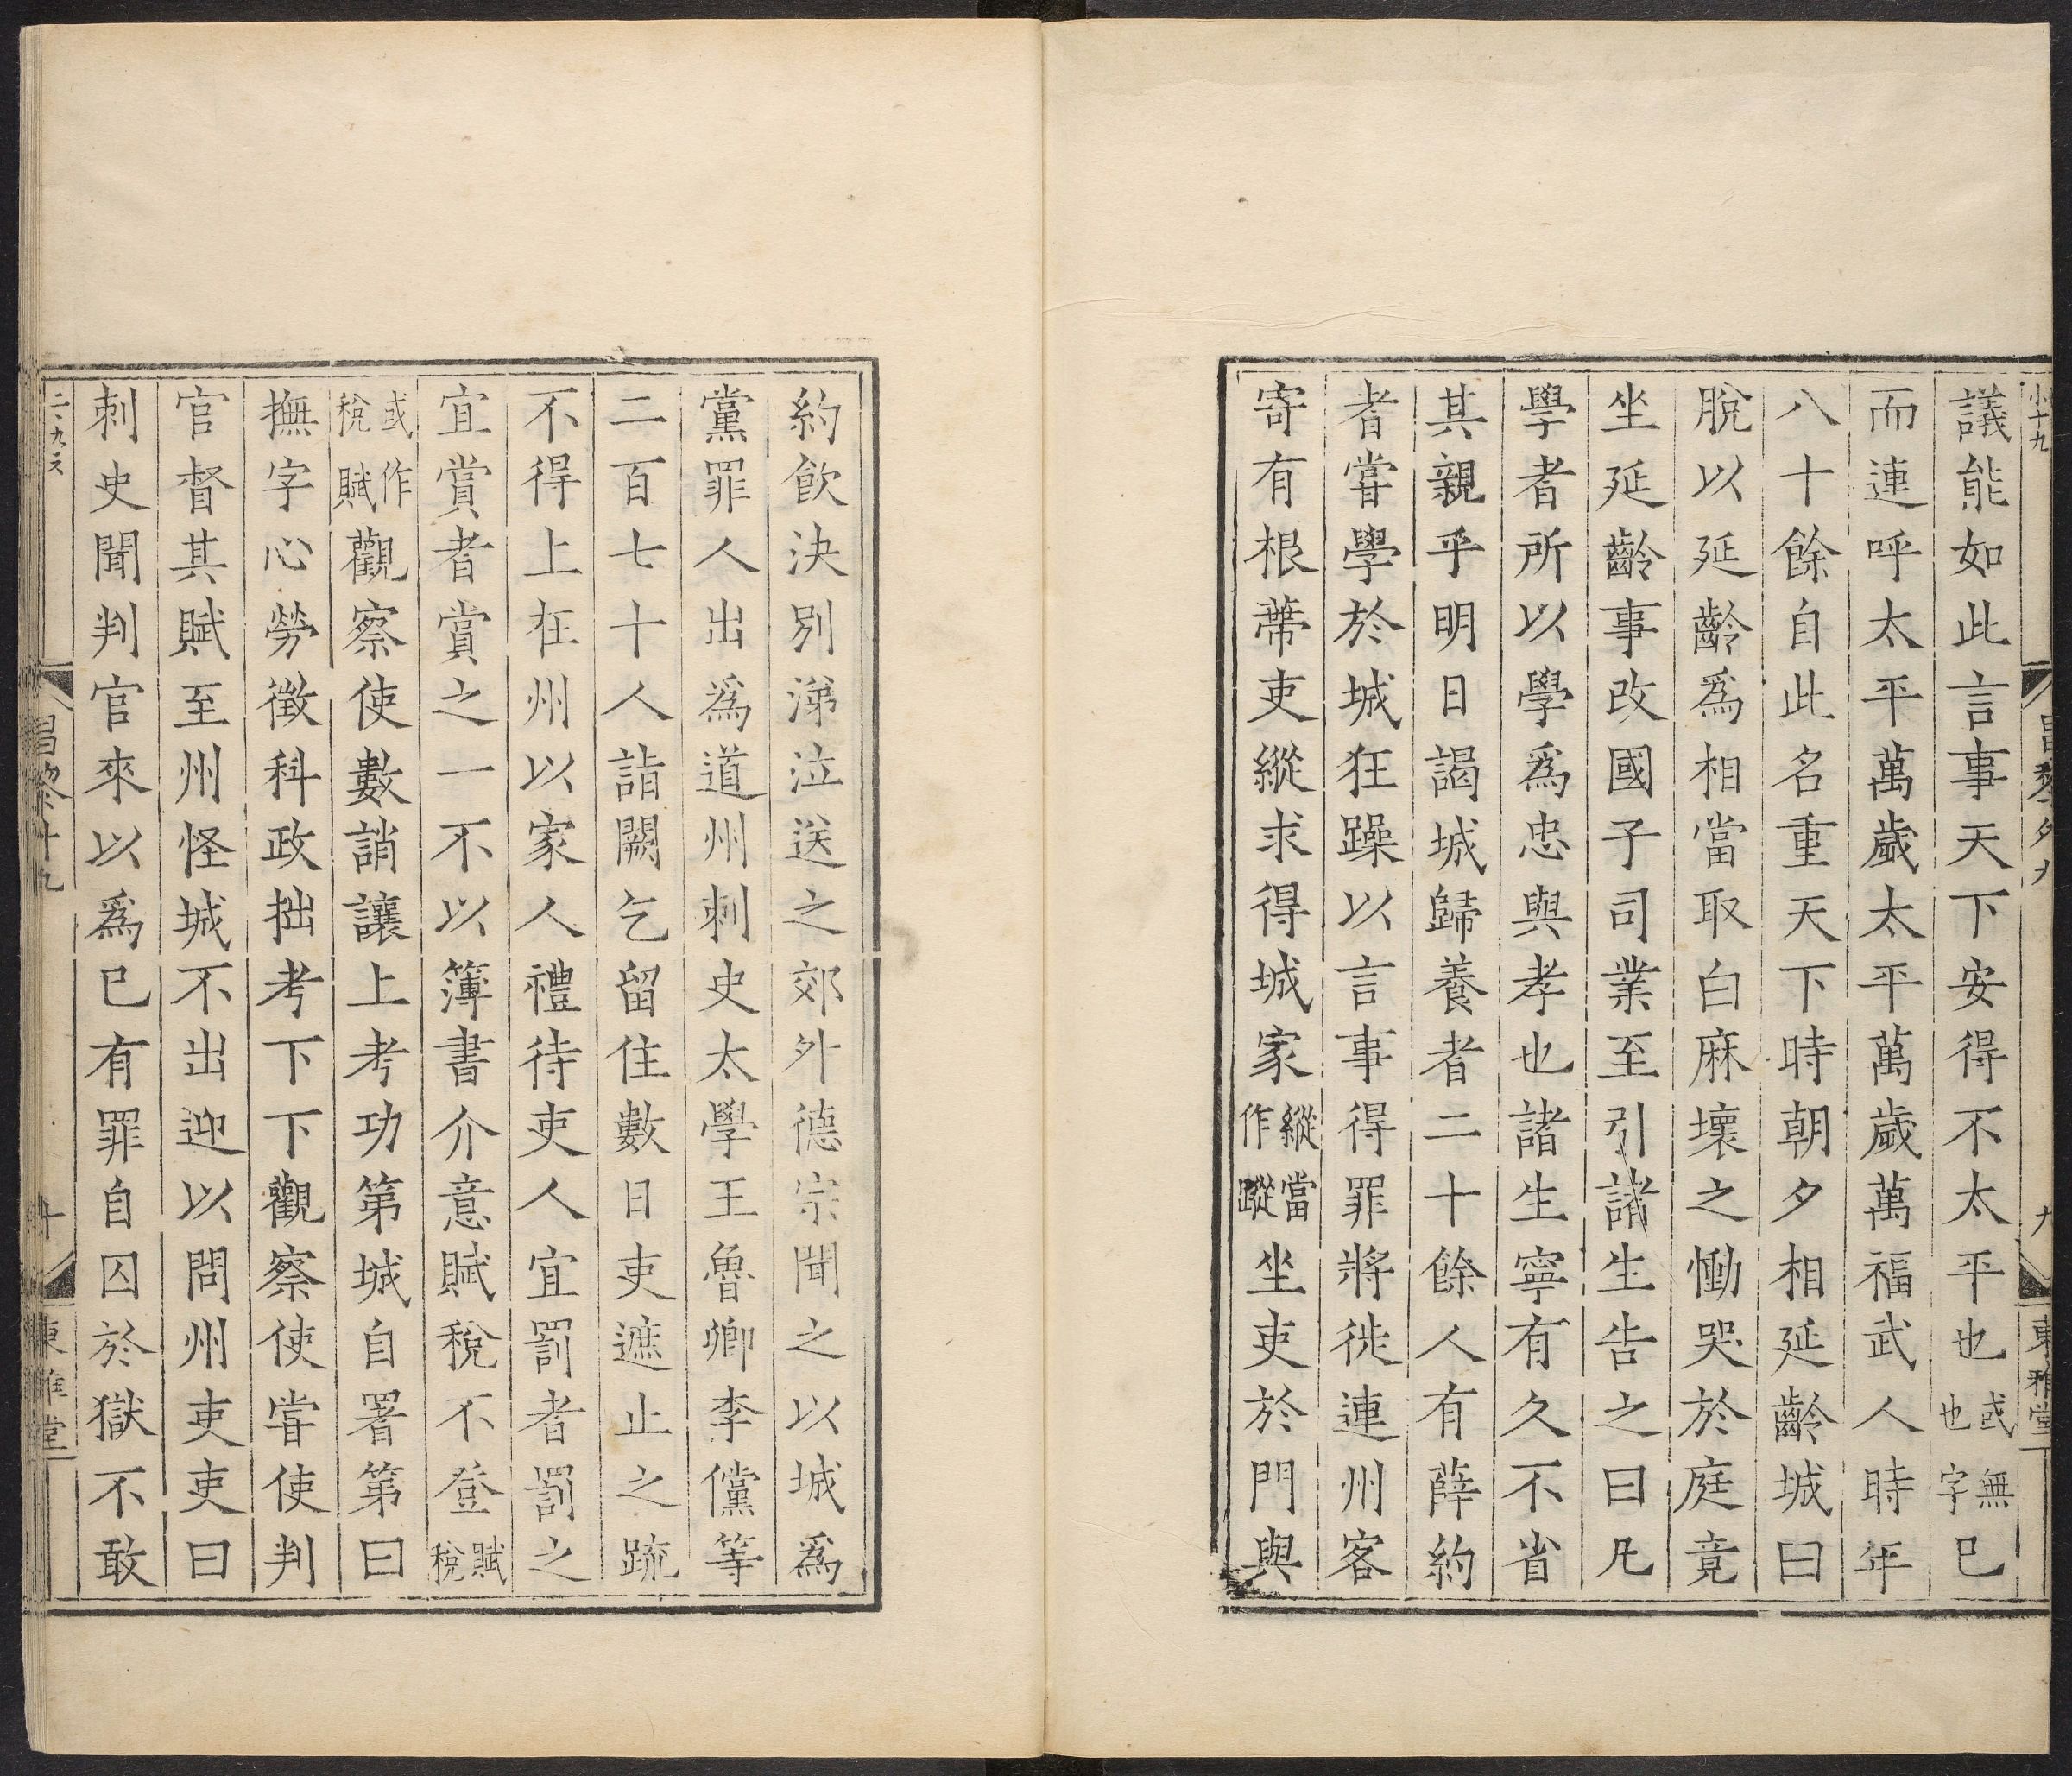 小十九
昌黎外九
九
東雅堂
議能如此言事天下安得不太平也或無也字已
而連呼太平萬歲太平萬歲萬福武人時年
八十餘自此名重天下時朝夕相延齡城曰
脫以延齡爲相當取白麻壞之慟哭於庭竟
坐延齡事改國子司業至引諸生告之曰凡
學者所以學爲忠與孝也諸生寧有久不省
其親乎明日謁城歸養者二十餘人有薛約
者嘗學於城狂躁以言事得罪將徙連州客
寄有根蔕吏縱求得城家縱當作蹤坐吏於門與
約飲決別涕泣送之郊外德宗聞之以城爲
黨罪人出爲道州刺史太學王魯卿李儻等
二百七十人詣闕乞留住數日吏遮止之疏
不得上在州以家人禮待吏人宜罰者罰之
宜賞者賞之一不以簿書介意賦稅不登賦稅
或作稅賦觀察使數誚讓上考功第城自署第曰
撫字心勞徵科政拙考下下觀察使嘗使判
官督其賦至州怪城不出迎以問州吏吏曰
刺史聞判官來以爲已有罪自囚於獄不敢
昌黎廿九
十
東雅堂